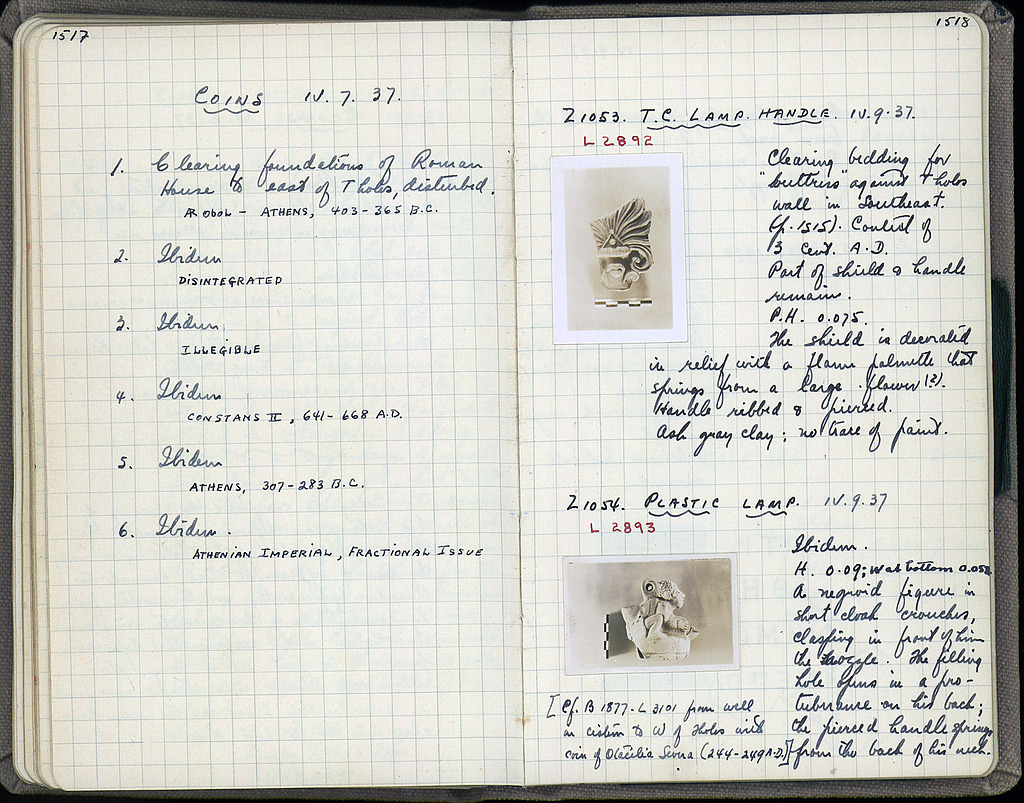 1517
COINS IV. 7. 37.
1. Clearing foundations of Roman
House to east of Tholos, disturbed.
ÆR OBOL - ATHENS, 403-365 B.C.
2. Ibidem
DISINTEGRATED
3. Ibidem
ILLEGIBLE
4. Ibidem
CONSTANS II, 641-668 A.D.
5. Ibidem
ATHENS, 307-283 B.C.
6. Ibidem.
ATHENIAN IMPERIAL, FRACTIONAL ISSUE
1518
Z1053. T.C. LAMP. HANDLE. IV.9.37.
L 2892
Clearing bedding for
"buttress" against Tholos
wall in Southeast.
(p. 1515). Context of
3 cent. A.D.
Part of shield & handle
remains.
P.H. 0.075.
The shield is decorated
in relief with a flame palmette that
springs from a large flower (?).
Handle ribbed & pierced.
Ash gray clay; no trace of paint.
Z1054. PLASTIC LAMP. IV.9.37
L 2893
Ibidem.
H. 0.09; W at bottom 0.052
A negroid figure in
short cloak crouches,
clasping in front of him
the nozzle. The filling
hole opens in a pro-
tuberance on his back;
the pierced handle springs
from the back of his neck.
[Cf. B 1877-L 3101 from well
in cistern to W of Tholos with
coin of Otacilia Severa (244-249 A.D.)]